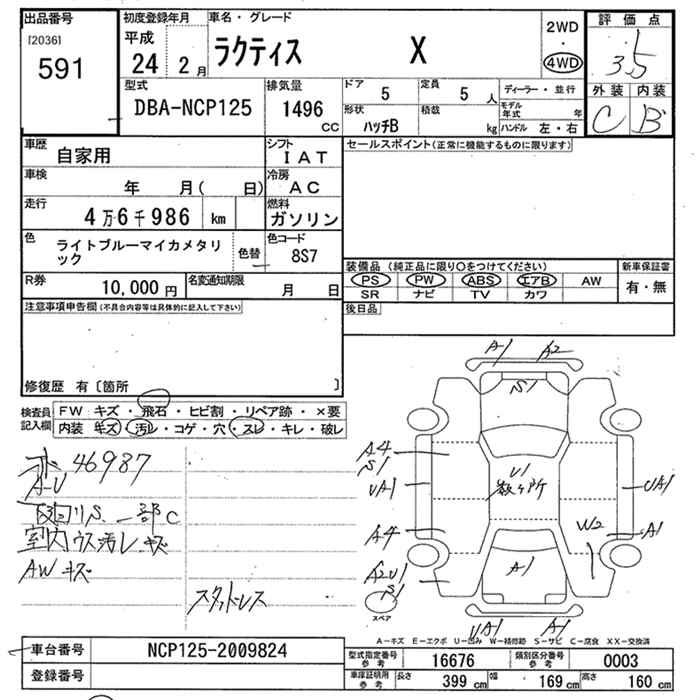 出品番号
[2036]
591
初度登録年月
平成
24 2 月
車名・グレード
ラクティス X
2WD
・
4WD
評価点
3.5
外装 内装
C B
型式
DBA-NCP125
排気量
1496
CC
ドア
5
定員
5 人
形状
ハッチB
積載
kg
ディーラー・並行
モデル年式 年
ハンドル 左・右
車歴
自家用
シフト
I A T
車検
年 月( 日)
冷房
A C
走行
4万6千986 km
燃料
ガソリン
色
ライトブルーマイカメタリ
ック
色替
色コード
8S7
R券
10,000 円
名変通知期限
月 日
セールスポイント(正常に機能するものに限ります)
装備品 (純正品に限り○をつけてください)
新車保証書
PS PW ABS エアB AW
有・無
SR ナビ TV カワ
後日品
注意事項申告欄(不具合内容等は具体的に記入して下さい)
修復歴 有〔箇所 〕
検査員
記入欄
FW キズ・飛石・ヒビ割・リペア跡・×要
内装 キズ・汚レ・コゲ・穴・スレ・キレ・破レ
46987
A-U
S. 一部C
室内ウス汚レ キズ
AW キズ
スタッドレス
A1 A2
S1
A4
S1
UA1
U1
数ヶ所
UA1
A4
W2
A1
A2U1
S1
A1
スペア
UA1 A1
A-キズ E-エクボ U-凹み W-補修跡 S-サビ C-腐食 XX-交換済
車台番号
NCP125-2009824
登録番号
型式指定番号
参考
16676
類別区分番号
参考
0003
車庫証明用
参考
長さ 399 cm
幅 169 cm
高さ 160 cm